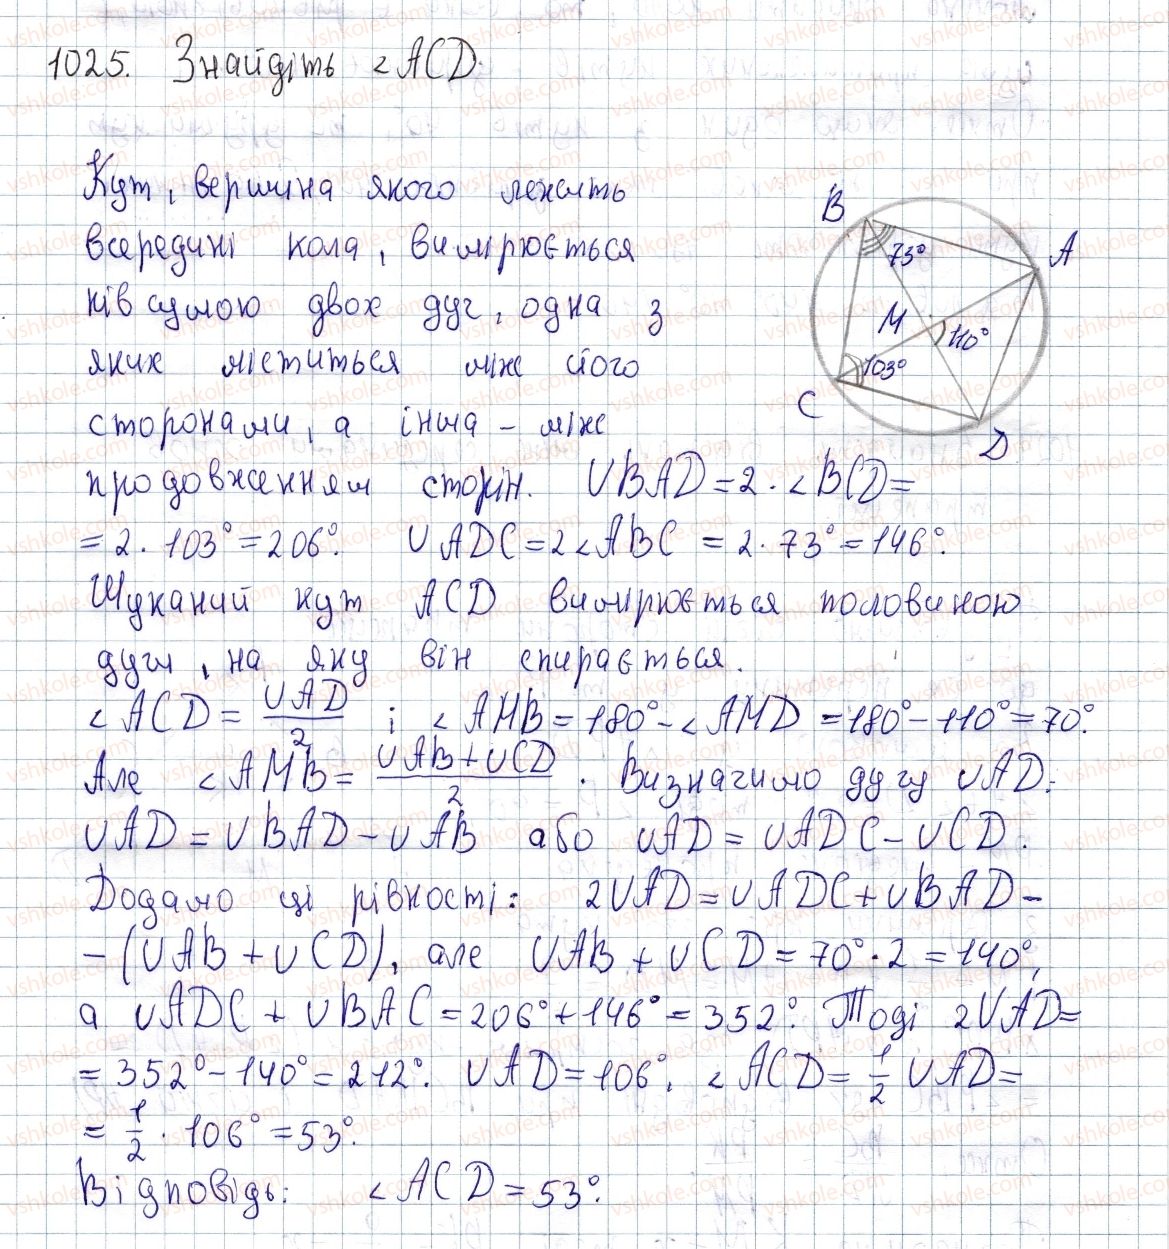 1025. Знайдіть ∠ACD.
Кут, вершина якого лежить
всередині кола, вимірюється
пів сумою двох дуг, одна з
яких міститься між його
сторонами, а інша – між
продовженням сторін. ∪BAD = 2 · ∠BCD =
= 2 · 103° = 206°. ∪ADC = 2∠ABC = 2 · 73° = 146°.
Шуканий кут ACD вимірюється половиною
дуги, на яку він спирається.
∠ACD = ∪AD/2 і ∠AMB = 180° - ∠AMD = 180° - 110° = 70°.
Але ∠AMB = (∪AB + ∪CD)/2. Визначимо дугу ∪AD:
∪AD = ∪BAD - ∪AB або ∪AD = ∪ADC - ∪CD.
Додамо ці рівності: 2∪AD = ∪ADC + ∪BAD -
- (∪AB + ∪CD), але ∪AB + ∪CD = 70° · 2 = 140°,
а ∪ADC + ∪BAC = 206° + 146° = 352°. Тоді 2∪AD =
= 352° - 140° = 212°. ∪AD = 106°. ∠ACD = 1/2 ∪AD =
= 1/2 · 106° = 53°.
Відповідь: ∠ACD = 53°.
B
73°
A
M
110°
103°
C
D
vshkole.com